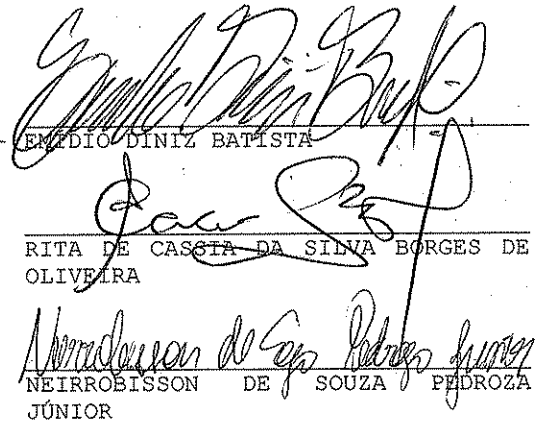 EMÍDIO DINIZ BATISTA
RITA DE CASSIA DA SILVA BORGES DE
OLIVEIRA
de Pedroza Junior
NEIRROBISSON DE SOUZA PEDROZA
JÚNIOR